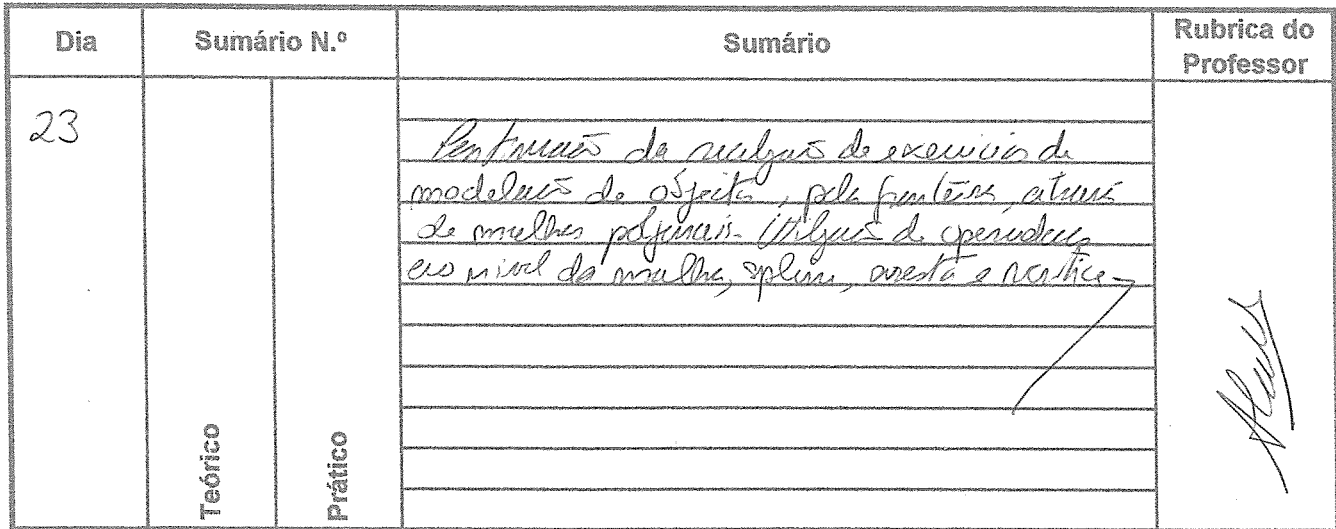 Dia Sumário N.º Sumário Rubrica do Professor
23
Continuação da realização de exercícios de
modelação de objectos, pela fronteira, através
de malhas poligonais. Utilização de operadores
ao nível da malha, spline, aresta e vértice
Teórico
Prático